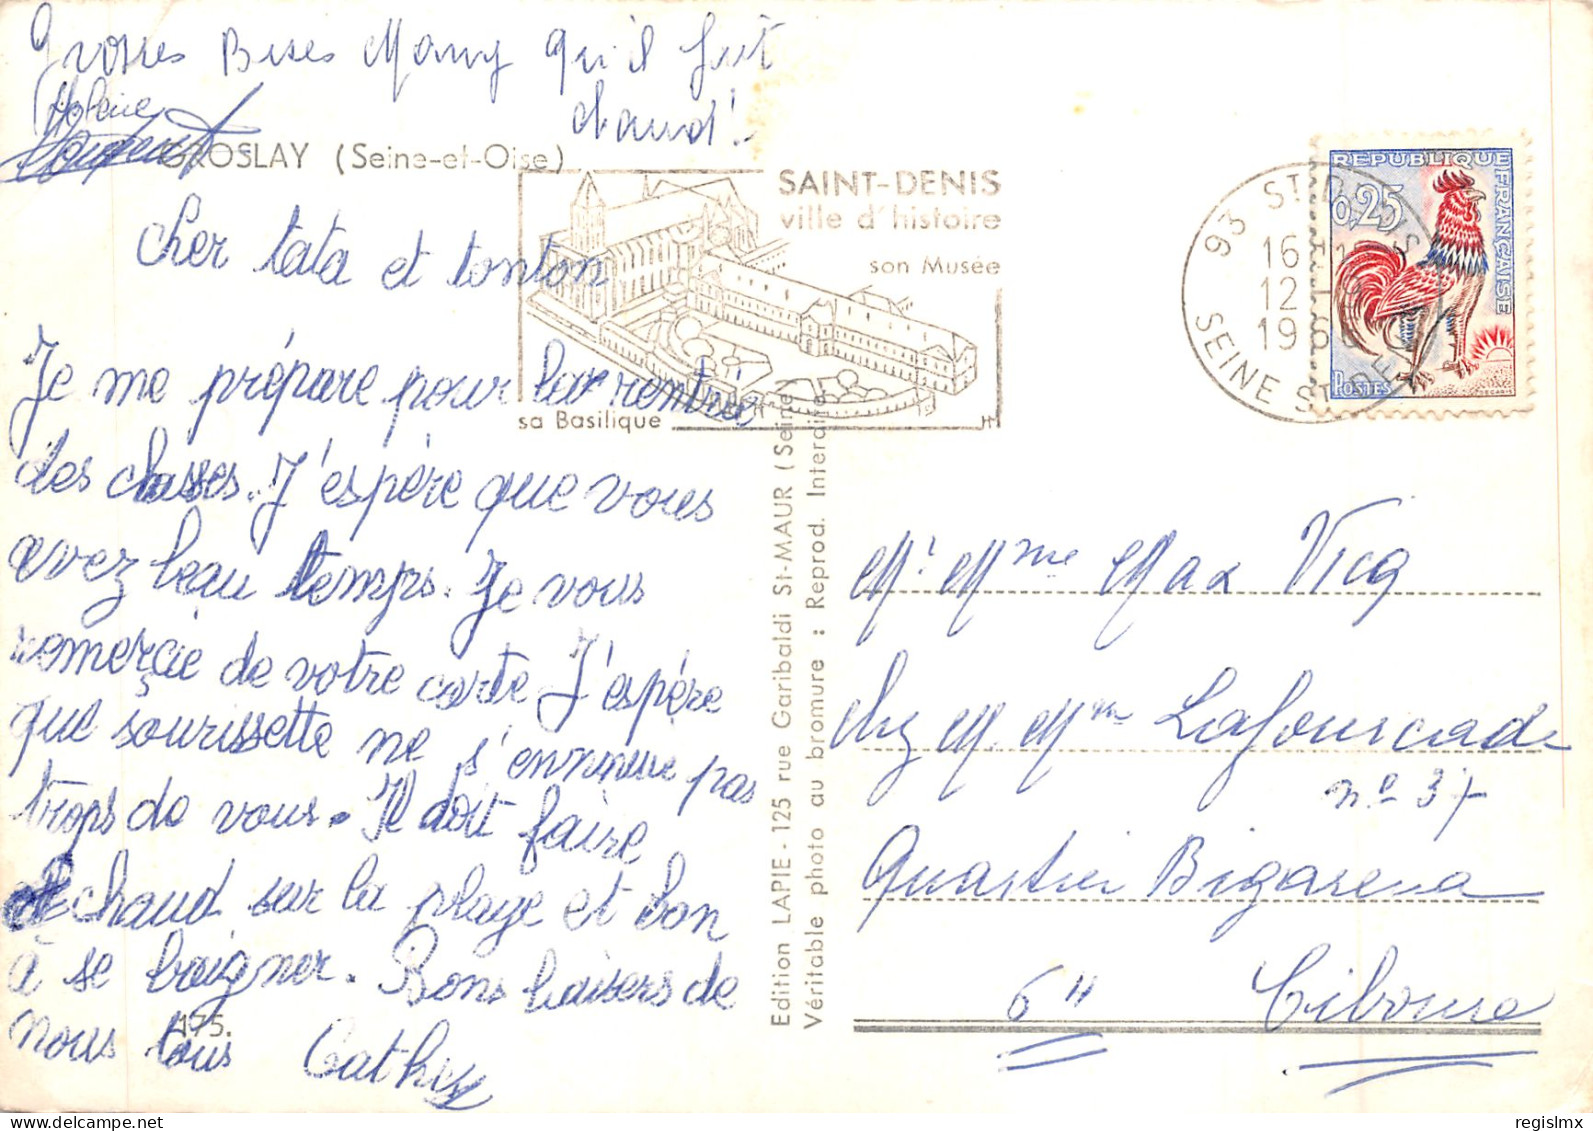 Grosses Bises Mamy qu'il fait
chaud!
GROSLAY (Seine-et-Oise)
Cher tata et tonton
Je me prépare pour la rentrée
des classes. J'espère que vous
avez beau temps. Je vous
remerçie de votre carte J'espère
que sourissette ne s'ennuisse pas
trops de vous. Il doit faire
chaud sur la plage et bon
à se baigner. Bons baisers de
nous tous Cathy
175.
SAINT-DENIS
ville d'histoire
son Musée
sa Basilique
93 ST DENIS
16 H
12
196
SEINE ST DENIS
REPUBLIQUE FRANÇAISE
0,25
POSTES
Edition LAPIE - 125 rue Garibaldi St-MAUR (Seine)
Véritable photo au bromure : Reprod. Interdite
Mr Mme Max Vicq
chez M. Mme Lafourcade
no 37
Quartier Bigarena
64 Ciboure
regislmx